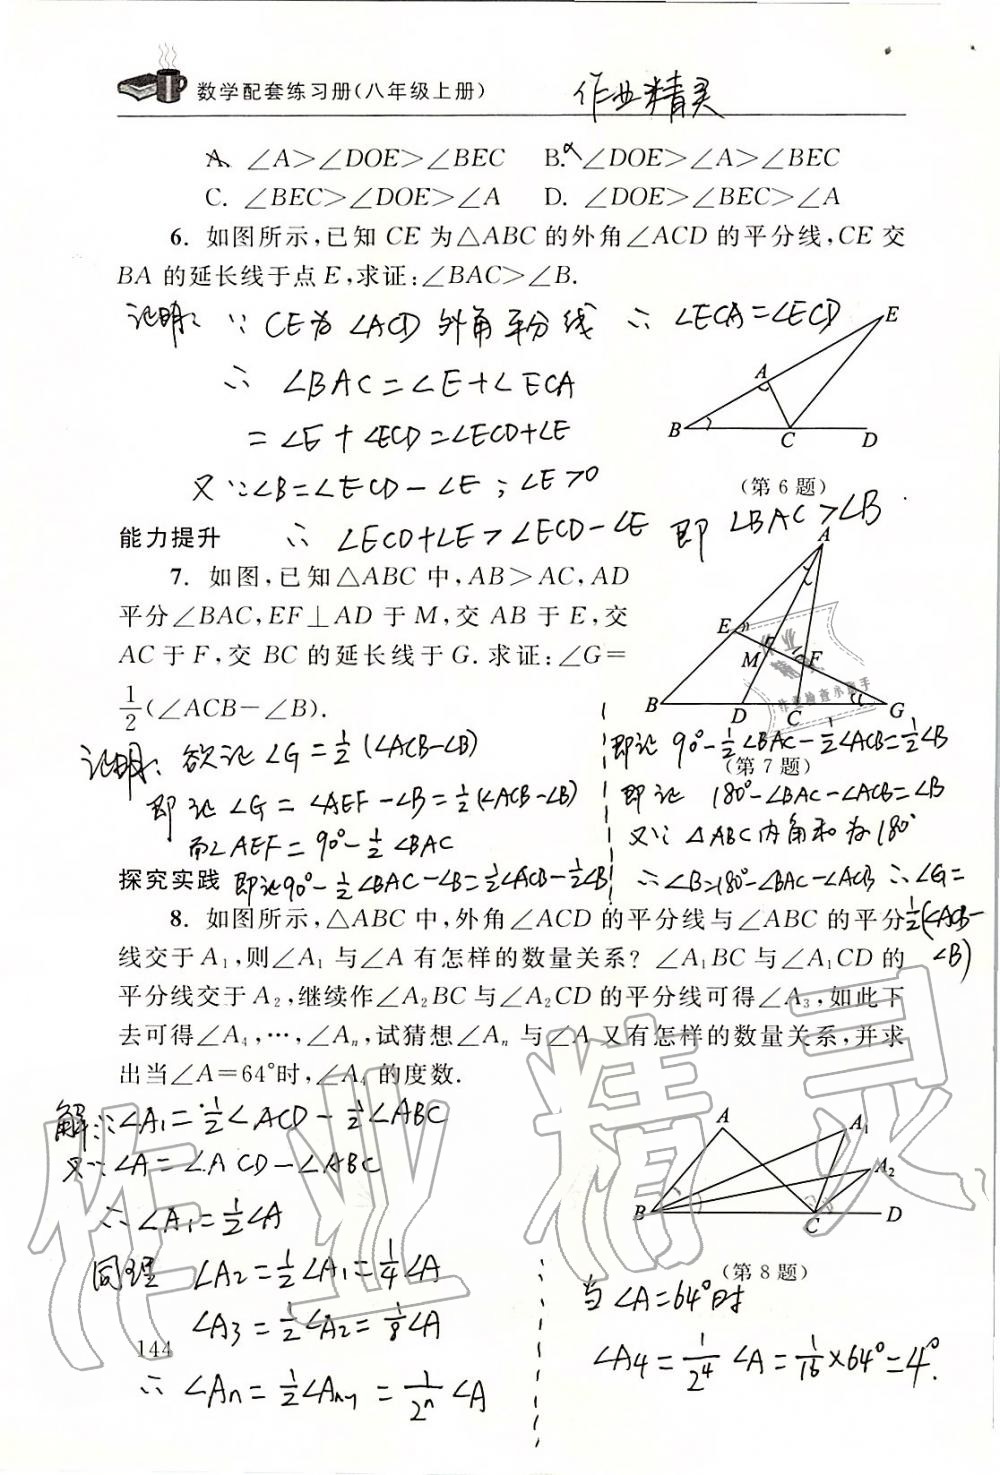 数学配套练习册(八年级上册) 作业精灵
A. ∠A>∠DOE>∠BEC B. ∠DOE>∠A>∠BEC
C. ∠BEC>∠DOE>∠A D. ∠DOE>∠BEC>∠A
6. 如图所示,已知 CE 为△ABC 的外角∠ACD 的平分线,CE 交
BA 的延长线于点 E,求证:∠BAC>∠B.
证明: ∵ CE为 ∠ACD 外角平分线 ∴ ∠ECA=∠ECD
∴ ∠BAC=∠E+∠ECA
=∠E+∠ECD=∠ECD+∠E
又∵∠B=∠ECD-∠E ; ∠E>0
∴ ∠ECD+∠E>∠ECD-∠E 即 ∠BAC>∠B
E
A
B C D
(第 6 题)
能力提升
7. 如图,已知△ABC 中,AB>AC,AD
平分∠BAC,EF⊥AD 于 M,交 AB 于 E,交
AC 于 F,交 BC 的延长线于 G. 求证:∠G=
1/2(∠ACB-∠B).
A
E
M F
B D C G
(第 7 题)
证明: 欲证 ∠G=1/2(∠ACB-∠B)
即证 ∠G=∠AEF-∠B=1/2(∠ACB-∠B)
而∠AEF=90°-1/2∠BAC
即证90°-1/2∠BAC-∠B=1/2∠ACB-1/2∠B
即证 90°-1/2∠BAC-1/2∠ACB=1/2∠B
即证 180°-∠BAC-∠ACB=∠B
又∵ △ABC内角和为180°
∴∠B=180°-∠BAC-∠ACB ∴∠G=
1/2(∠ACB-
∠B)
探究实践
8. 如图所示,△ABC 中,外角∠ACD 的平分线与∠ABC 的平分
线交于 A₁,则∠A₁ 与∠A 有怎样的数量关系? ∠A₁BC 与∠A₁CD 的
平分线交于 A₂,继续作∠A₂BC 与∠A₂CD 的平分线可得∠A₃,如此下
去可得∠A₄,…,∠Aₙ,试猜想∠Aₙ 与∠A 又有怎样的数量关系,并求
出当∠A=64°时,∠A₄ 的度数.
解:∵∠A₁=1/2∠ACD-1/2∠ABC
又∵∠A=∠ACD-∠ABC
∴∠A₁=1/2∠A
同理 ∠A₂=1/2∠A₁=1/4∠A
∠A₃=1/2∠A₂=1/8∠A
∴ ∠Aₙ=1/2∠Aₙ₋₁=1/2ⁿ∠A
A A₁
A₂
B C D
(第 8 题)
当∠A=64°时
∠A₄=1/2⁴∠A=1/16×64°=4°.
144
作业精灵